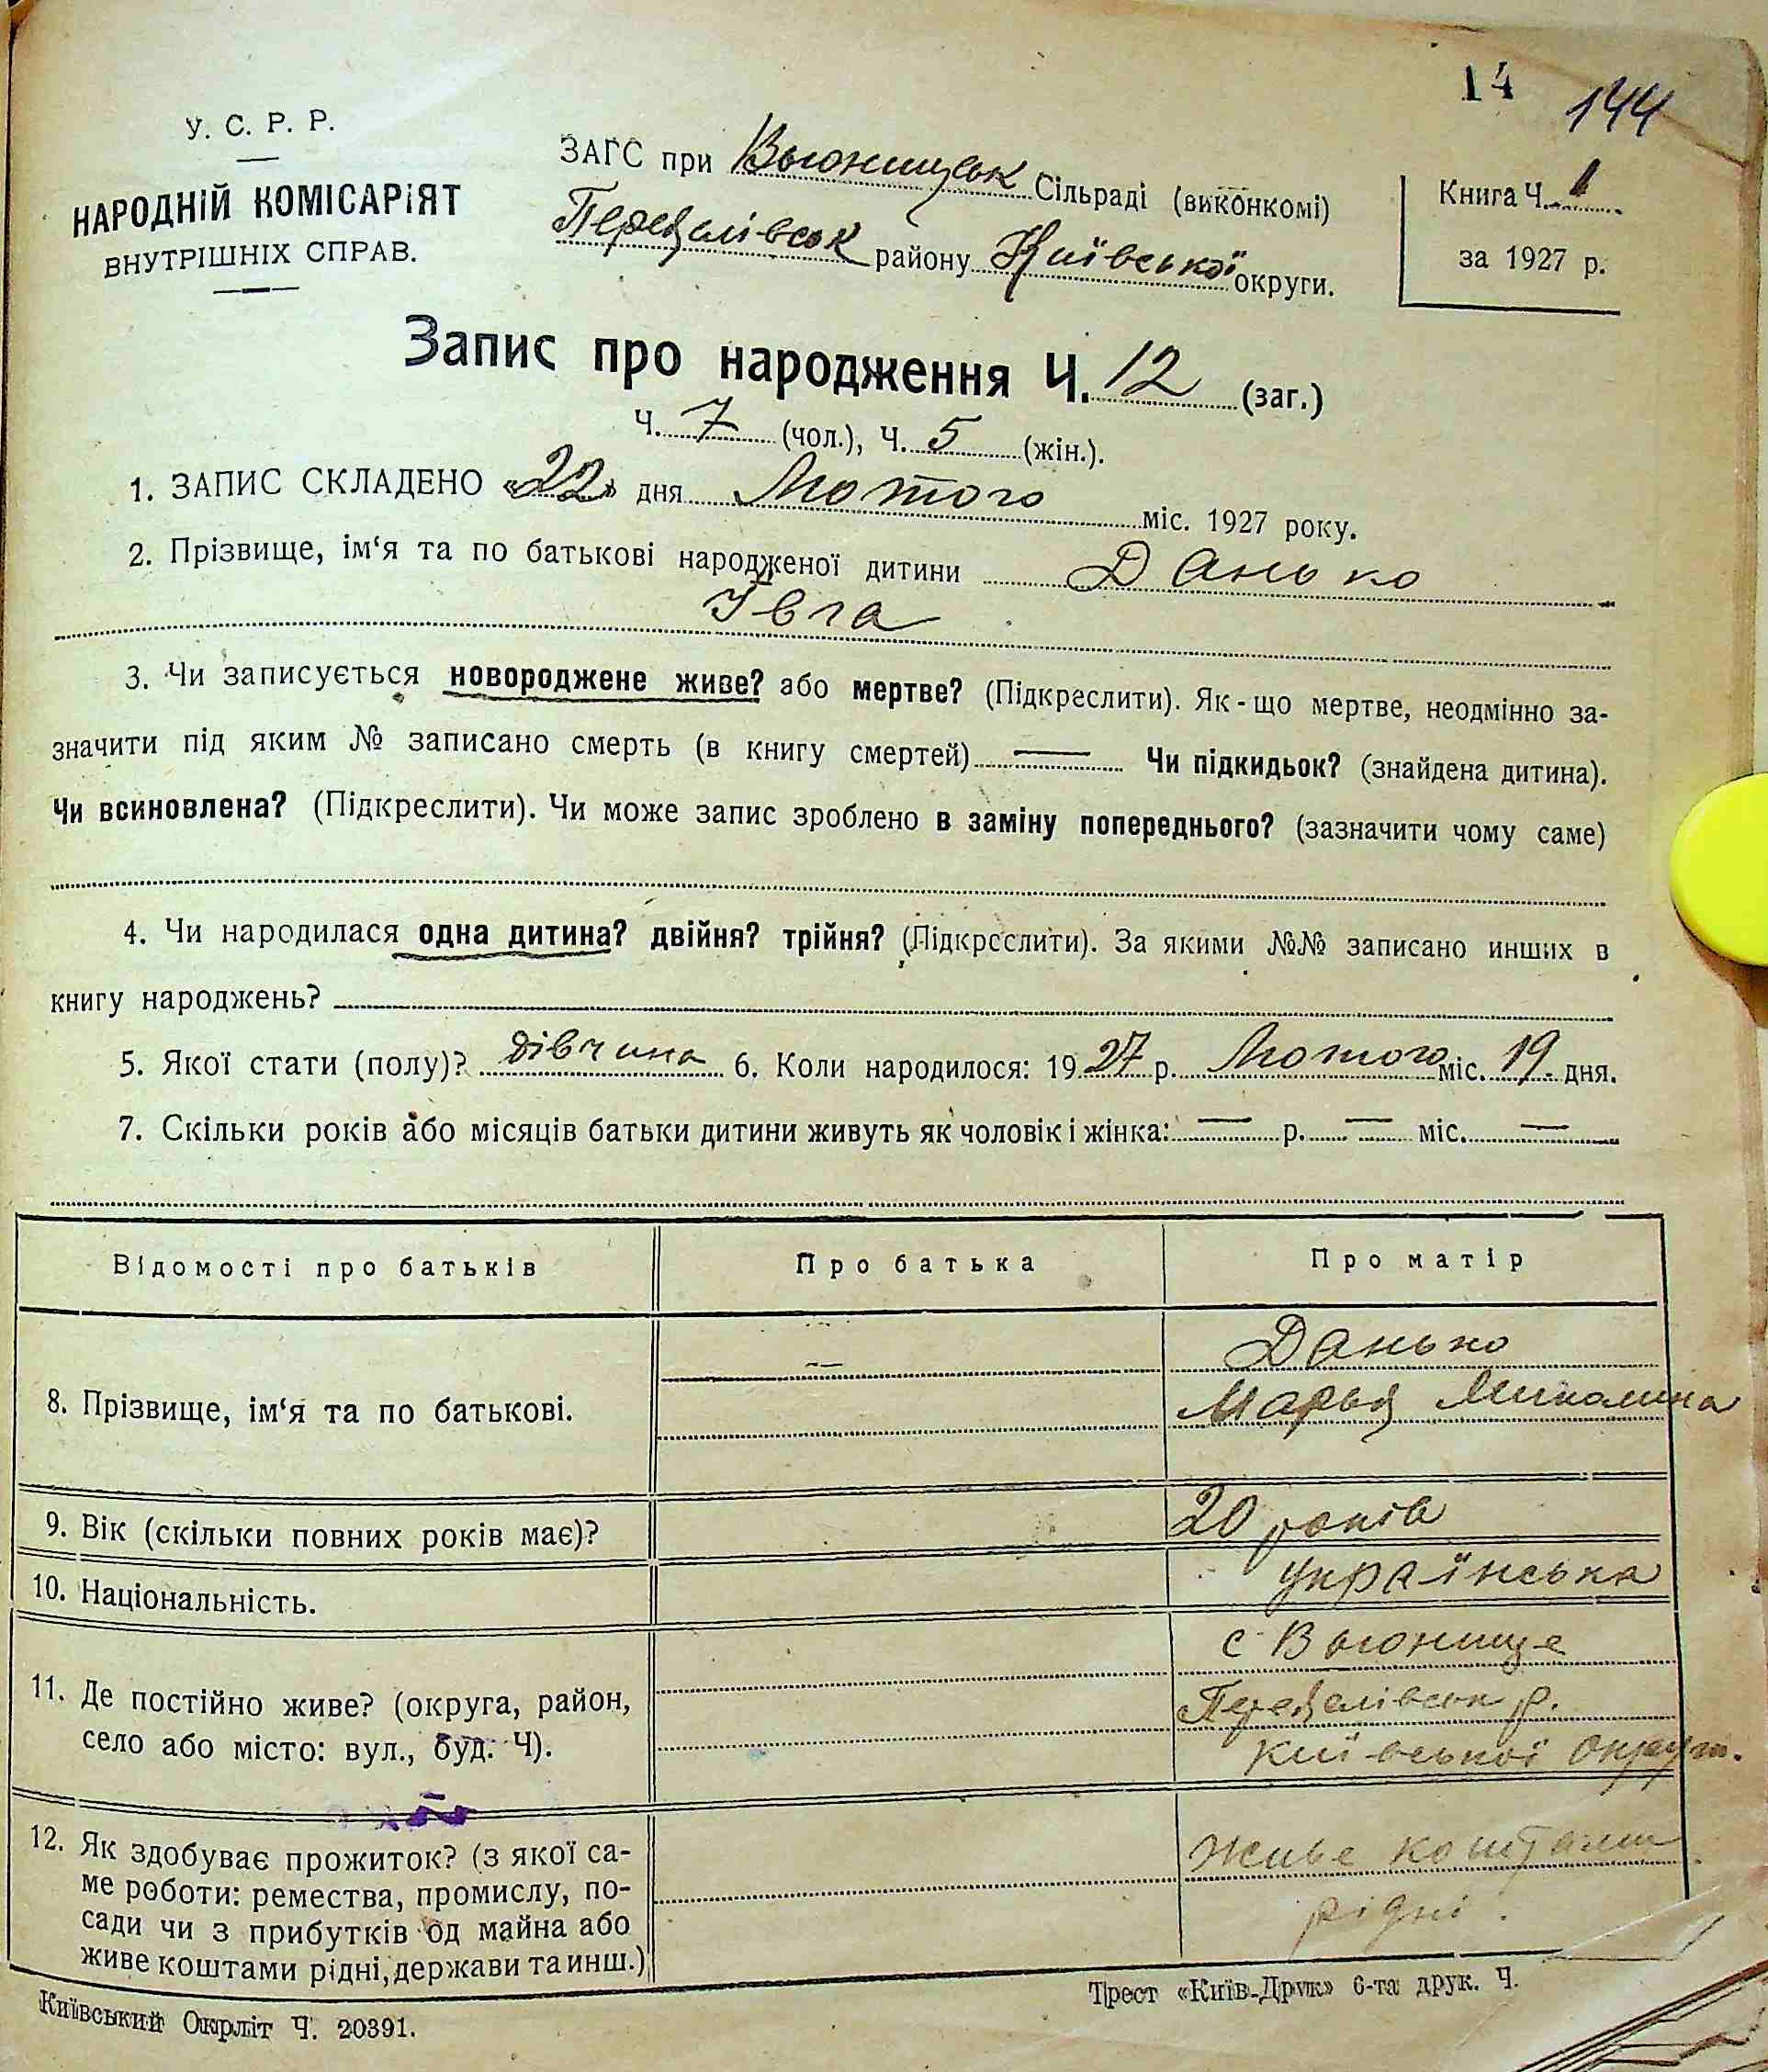 14 144
У. С. Р. Р.
НАРОДНІЙ КОМІСАРІЯТ
ВНУТРІШНІХ СПРАВ.
ЗАГС при Вьюнищськ Сільраді (виконкомі)
району Київської округи.
Книга Ч. 1
за 1927 р.
Запис про народження Ч. 12 (заг.)
Ч. 7 (чол.), Ч. 5 (жін.).
1. ЗАПИС СКЛАДЕНО «22» дня Лютого міс. 1927 року.
2. Прізвище, ім‘я та по батькові народженої дитини Данько
Івга
3. Чи записується новороджене живе? або мертве? (Підкреслити). Як-що мертве, неодмінно за-
значити під яким № записано смерть (в книгу смертей) — Чи підкидьок? (знайдена дитина).
Чи всиновлена? (Підкреслити). Чи може запис зроблено в заміну попереднього? (зазначити чому саме)
4. Чи народилася одна дитина? двійня? трійня? (Підкреслити). За якими №№ записано инших в
книгу народжень?
5. Якої стати (полу)? дівчина 6. Коли народилося: 1927 р. Лютого міс. 19 дня.
7. Скільки років або місяців батьки дитини живуть як чоловік і жінка: — р. — міс. —
Відомості про батьків Про батька Про матір
8. Прізвище, ім‘я та по батькові. — Данько
Марья Миколина
9. Вік (скільки повних років має)? 20 років
10. Національність. українська
11. Де постійно живе? (округа, район,
село або місто: вул., буд. Ч).
с Вьюнище
р.
київської округи.
12. Як здобуває прожиток? (з якої са-
ме роботи: ремества, промислу, по-
сади чи з прибутків од майна або
живе коштами рідні, держави та инш.)
живе коштами
рідні.
Київський Окрліт Ч. 20391.
Трест «Київ-Друк» 6-та друк. Ч.